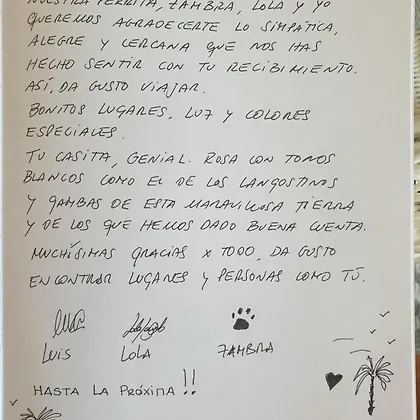 NUESTRA PERRITA, ZAMBRA, LOLA Y YO
QUEREMOS AGRADECERTE LO SIMPÁTICA,
ALEGRE Y CERCANA QUE NOS HAS
HECHO SENTIR CON TU RECIBIMIENTO.
ASÍ, DA GUSTO VIAJAR.
BONITOS LUGARES, LUZ Y COLORES
ESPECIALES.
TU CASITA, GENIAL. ROSA CON TONOS
BLANCOS COMO EL DE LOS LANGOSTINOS
Y GAMBAS DE ESTA MARAVILLOSA TIERRA
Y DE LOS QUE HEMOS DADO BUENA CUENTA.
MUCHÍSIMAS GRACIAS X TODO, DA GUSTO
ENCONTRAR LUGARES Y PERSONAS COMO TÚ.
LUIS LOLA ZAMBRA
HASTA LA PRÓXIMA!!